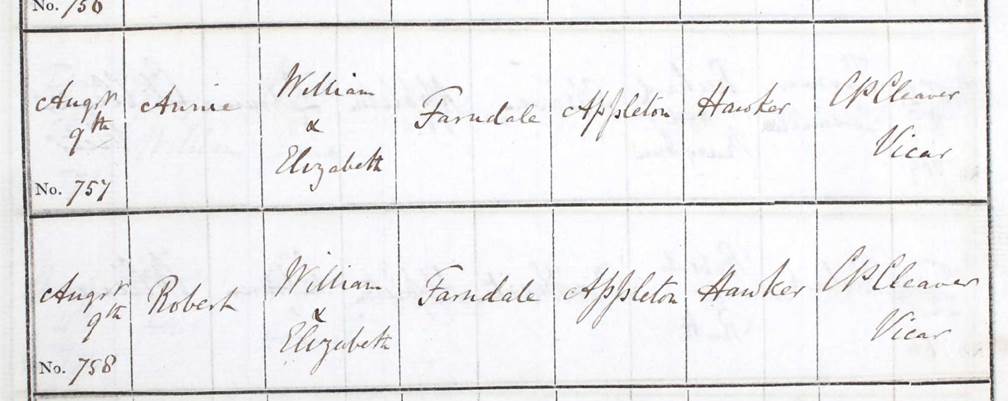 No. 756
Augst 9th
No. 757
Annie
William
&
Elizabeth
Farndale
Appleton
Hawker
CPCleaver
Vicar
Augst 9th
No. 758
Robert
William
&
Elizabeth
Farndale
Appleton
Hawker
CPCleaver
Vicar